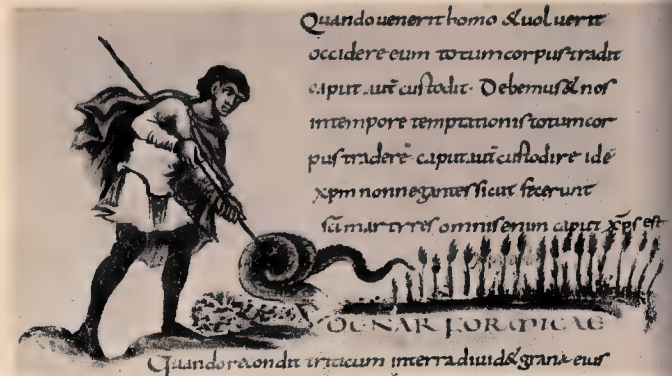 Quando uenerit homo & uoluerit
occidere eum totum corpus tradit
caput aūt custodit. Debemus & nos
in tempore temptationis totum cor
pus tradere caput aūt custodire idē
xp̄m non negantes sicut fecerunt
sc̄i martyres omnis enim caput xp̄s est
DE NAT FORMICAE
Quando recondit triticum in terra diuid& grana eius